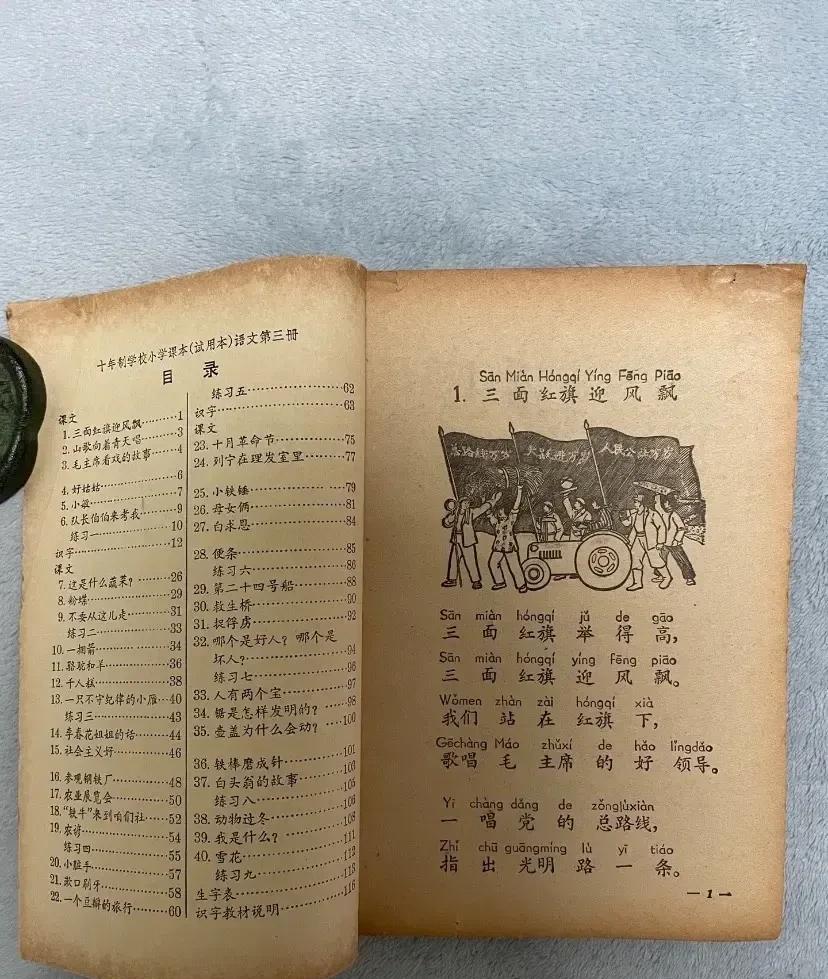 十年制学校小学课本(试用本)语文第三册
目 录
课文
1.三面红旗迎风飘……1
2.山歌向着青天唱……3
3.毛主席看戏的故事……4
4.好姑姑……6
5.小敏……7
6.队长伯伯来考我……9
练习一……10
识字……12
课文
7.这是什么蔬菜?……26
8.粉蝶……29
9.不要从这儿走……31
练习二……33
10.一捆箭……34
11.骆驼和羊……36
12.千人糕……38
13.一只不守纪律的小雁……40
练习三……43
14.李春花姐姐的话……44
15.社会主义好……46
16.参观钢铁厂……48
17.农业展览会……50
18.“铁牛”来到咱们社……52
19.农谚……54
练习四……55
20.小脏手……57
21.漱口刷牙……58
22.一个豆瓣的旅行……60
练习五……62
识字……63
课文
23.十月革命节……75
24.列宁在理发室里……77
25.小铁锤……79
26.母女俩……81
27.白求恩……84
28.便条……85
练习六……86
29.第二十四号船……88
30.救生桥……90
31.捉俘虏……92
32.哪个是好人?哪个是
坏人?……94
练习七……96
33.人有两个宝……97
34.锯是怎样发明的?……98
35.壶盖为什么会动?……100
36.铁棒磨成针……101
37.白头翁的故事……103
练习八……105
38.动物过冬……106
39.我是什么?……108
40.雪花……111
练习九……112
生字表……113
识字教材说明……116
Sān Miàn Hóngqí Yíng Fēng Piāo
1. 三面红旗迎风飘
总路线万岁 大跃进万岁 人民公社万岁
Sān miàn hóngqí jǔ de gāo
三面红旗举得高,
Sān miàn hóngqí yíng fēng piāo
三面红旗迎风飘。
Wǒmen zhàn zài hóngqí xià
我们站在红旗下,
Gēchàng Máo zhǔxí de hǎo lǐngdǎo
歌唱毛主席的好领导。
Yī chàng dǎng de zǒnglùxiàn
一唱党的总路线,
Zhǐ chū guāngmíng lù yī tiáo
指出光明路一条。
— 1 —